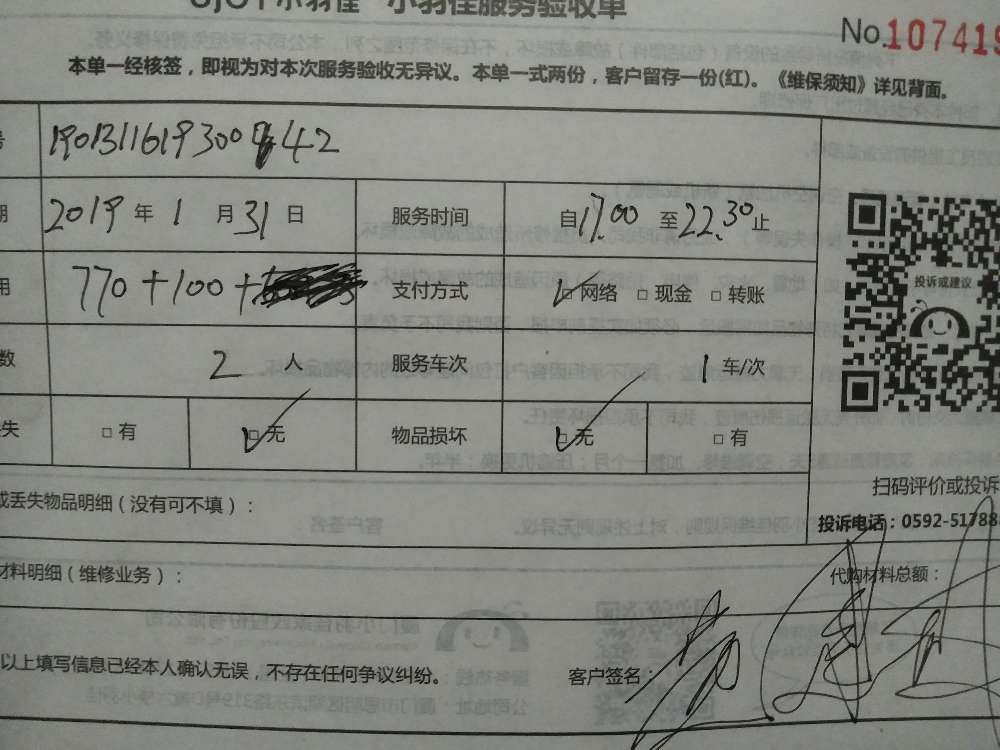 小羽佳服务验收单
No.107419
本单一经核签，即视为对本次服务验收无异议。本单一式两份，客户留存一份(红)。《维保须知》详见背面。
2019 年 1 月 31 日 服务时间 自17.00 至22.30止
770+100+ 支付方式 ☑ 网络 □ 现金 □ 转账
投诉或建议
数 2 人 服务车次 1 车/次
失 □ 有 ☑ 无 物品损坏 ☑ 无 □ 有
扫码评价或投诉
或丢失物品明细（没有可不填）：
投诉电话：0592-51788
材料明细（维修业务）： 代购材料总额：
以上填写信息已经本人确认无误，不存在任何争议纠纷。 客户签名：